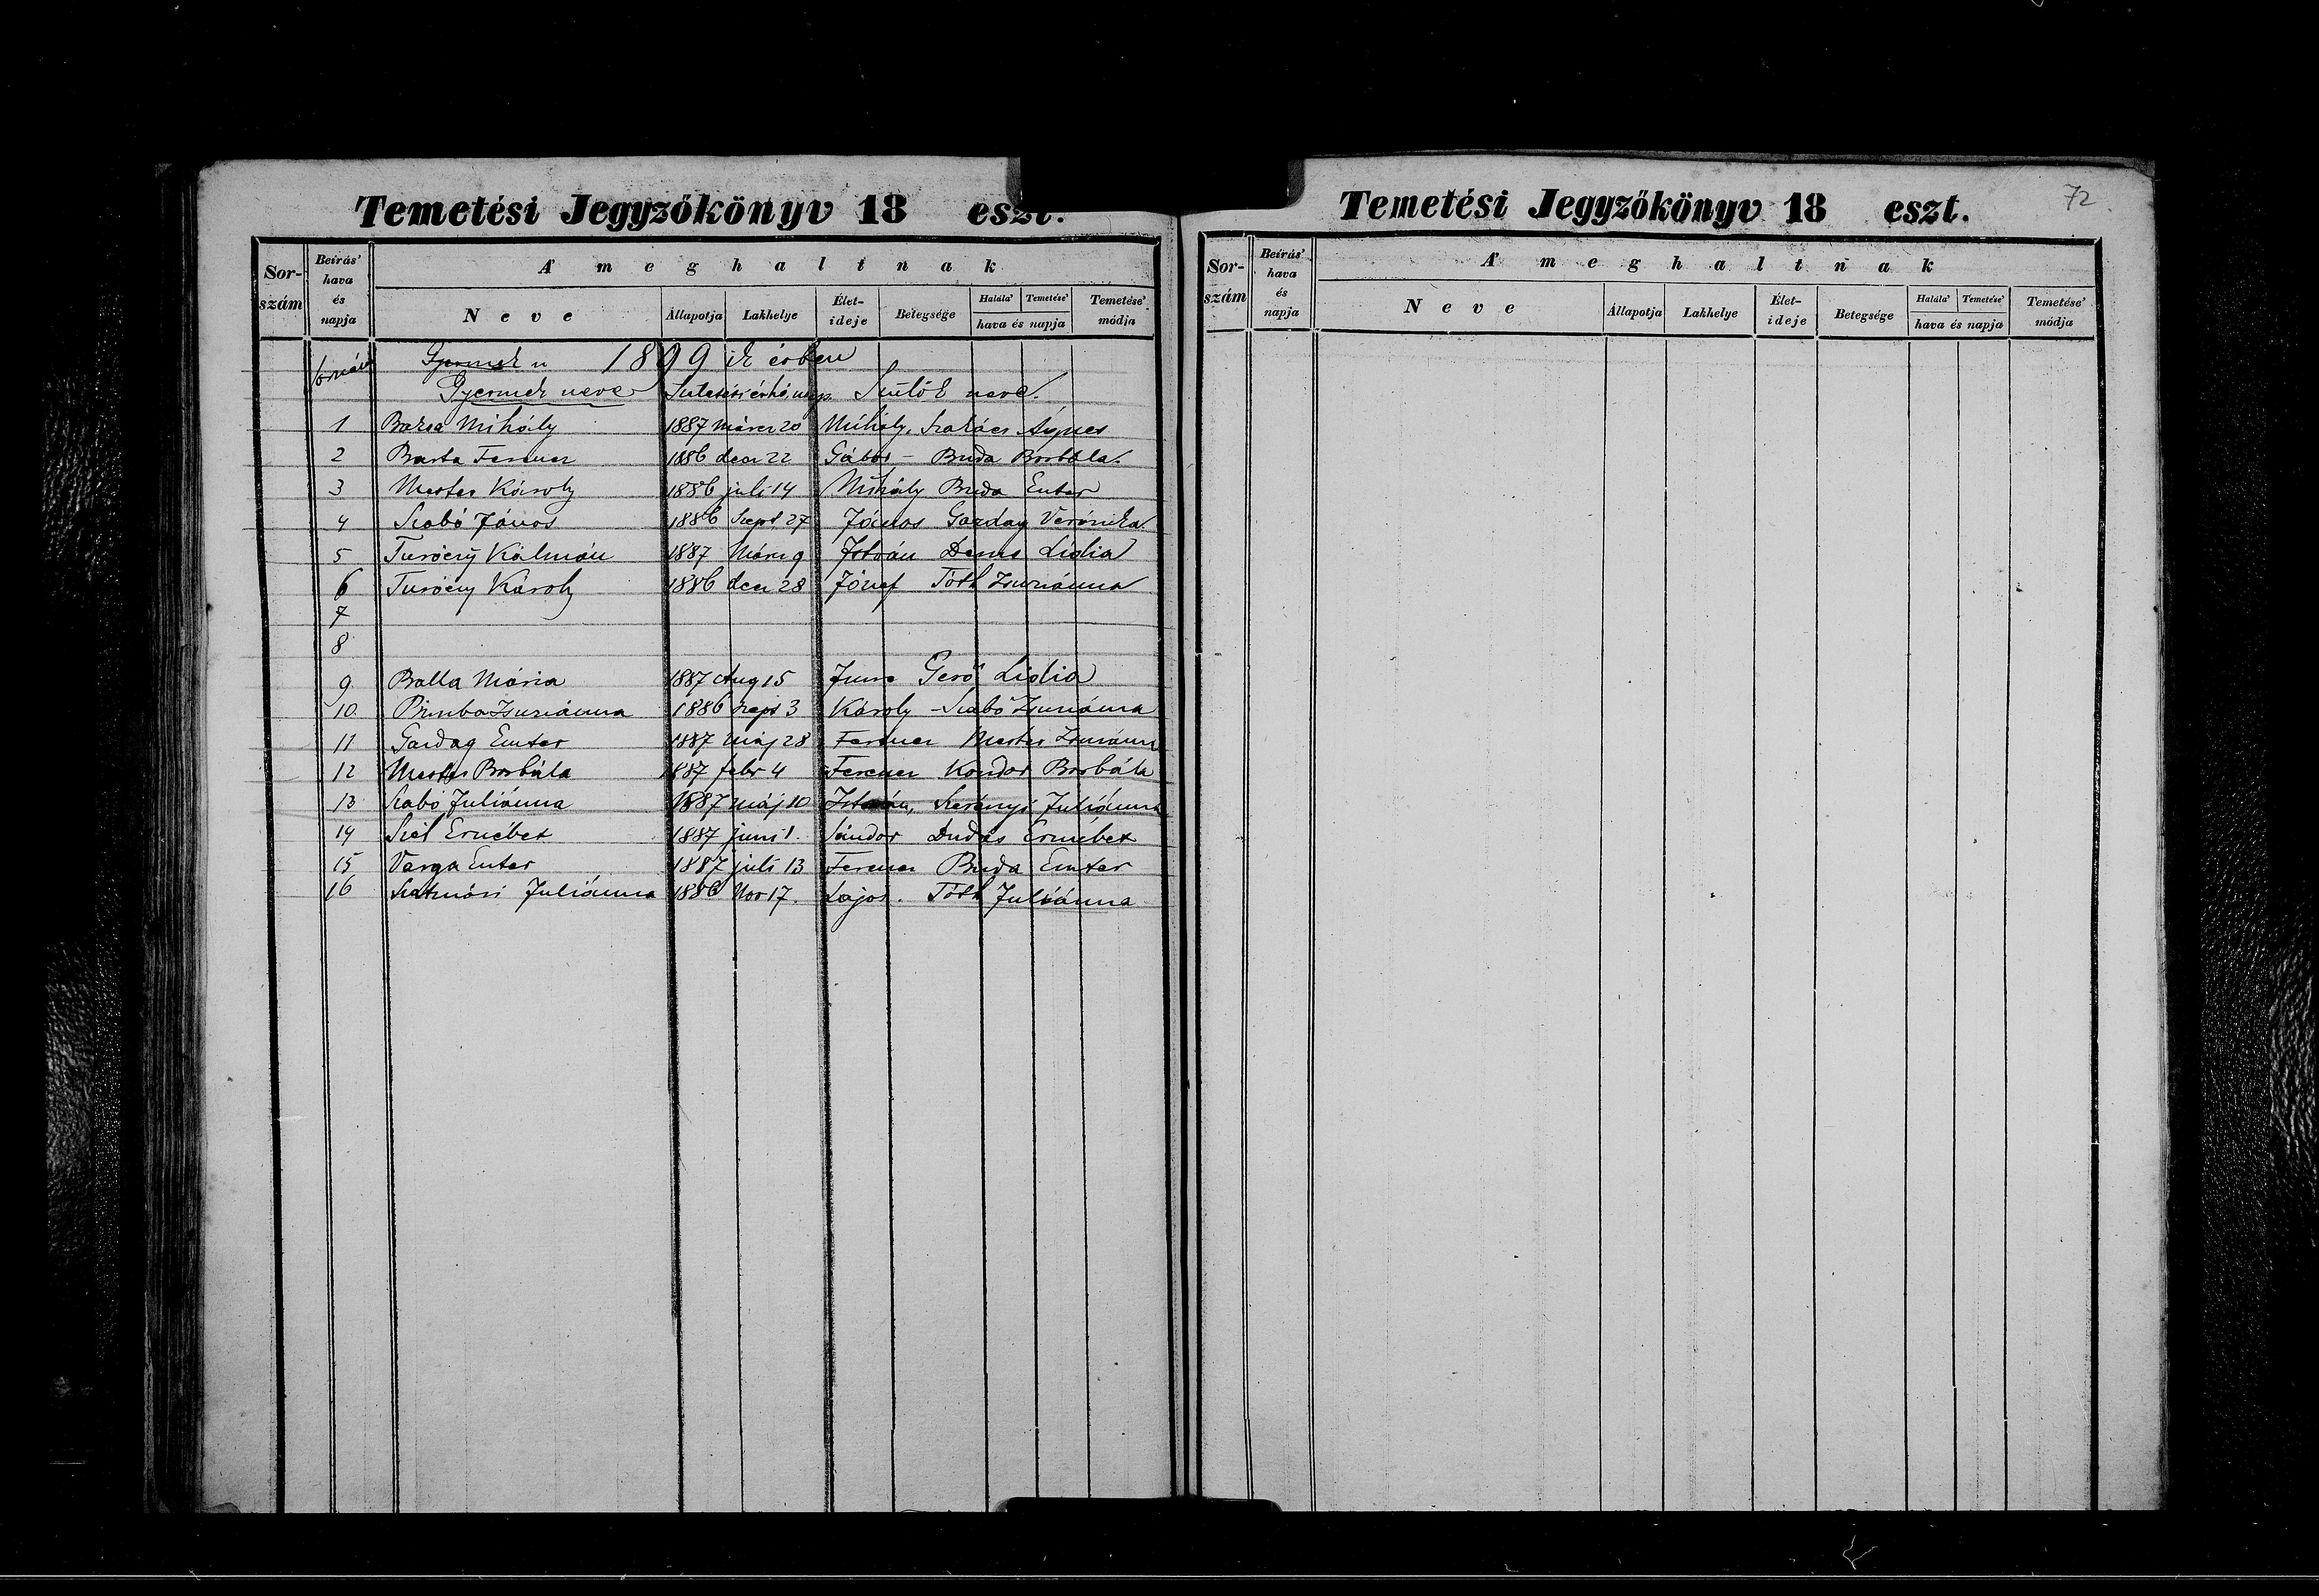 Temetési Jegyzőkönyv 18 eszt.
Sor-szám Beírás' hava és napja A' meghaltnak
Neve Állapotja Lakhelye Élet-ideje Betegsége Halála' Temetése' hava és napja Temetése' módja
Gyermek n 1899 ik évben
Gyermek neve Születési év hó, nap. Szülők neve.
1 Barta Mihály 1887 márcz 20 Mihály, Szakács Ágnes
2 Barta Ferencz 1886 decz 22 Gábor - Buda Borbála.
3 Mester Károly 1886 juli 14 Mihály Buda Eszter
4 Szabó János 1886 Szept 27 János Gazdag Verónika.
5 Turóczy Kálmán 1887 Márcz 9 István Deme Lidia
6 Turóczy Károly 1886 decz 28 József Tóth Zsuzsánna
7
8
9. Balla Mária 1887 Aug 15 Imre Gerő Lidia
10. Bimba Zsuzsánna 1886 Szept 3 Károly - Szabó Zsuzsánna
11 Gazdag Eszter 1887 Máj 28 Ferencz Mester Zsuzsánna
12 Mester Borbála 1887 febr 4 Ferencz Kondor Borbála
13 Szabó Juliánna 1887 máj 10 István, Szerényi Juliánna
14 Szél Erzsébet 1887 juni 1. Sándor Dudás Erzsébet
15 Varga Eszter 1887 juli 13 Ferencz Buda Eszter
16 Szatmári Juliánna 1886 Nov 17. Lajos. Tóth Juliánna
Temetési Jegyzőkönyv 18 eszt.
72
Sor-szám Beírás' hava és napja A' meghaltnak
Neve Állapotja Lakhelye Élet-ideje Betegsége Halála' Temetése' hava és napja Temetése' módja